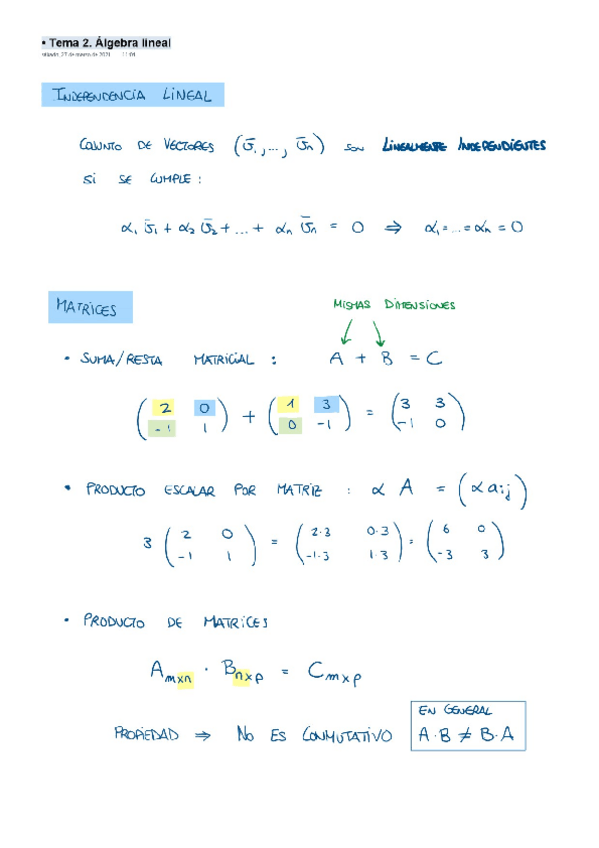 • Tema 2. Álgebra lineal
sábado, 27 de marzo de 2021 11:01
INDEPENDENCIA LINEAL
CONJUNTO DE VECTORES (v̄₁, ..., v̄ₙ) SON LINEALMENTE INDEPENDIENTES
SI SE CUMPLE :
α₁ v̄₁ + α₂ v̄₂ + ... + αₙ v̄ₙ = 0 ⇒ α₁ = ... = αₙ = 0
MATRICES
MISMAS DIMENSIONES
• SUMA/RESTA MATRICIAL : A + B = C
(2 0; -1 1) + (1 3; 0 -1) = (3 3; -1 0)
• PRODUCTO ESCALAR POR MATRIZ : α A = (α aij)
3 (2 0; -1 1) = (2·3 0·3; -1·3 1·3) = (6 0; -3 3)
• PRODUCTO DE MATRICES
Amxn · Bnxp = Cmxp
PROPIEDAD ⇒ NO ES CONMUTATIVO
EN GENERAL
A·B ≠ B·A